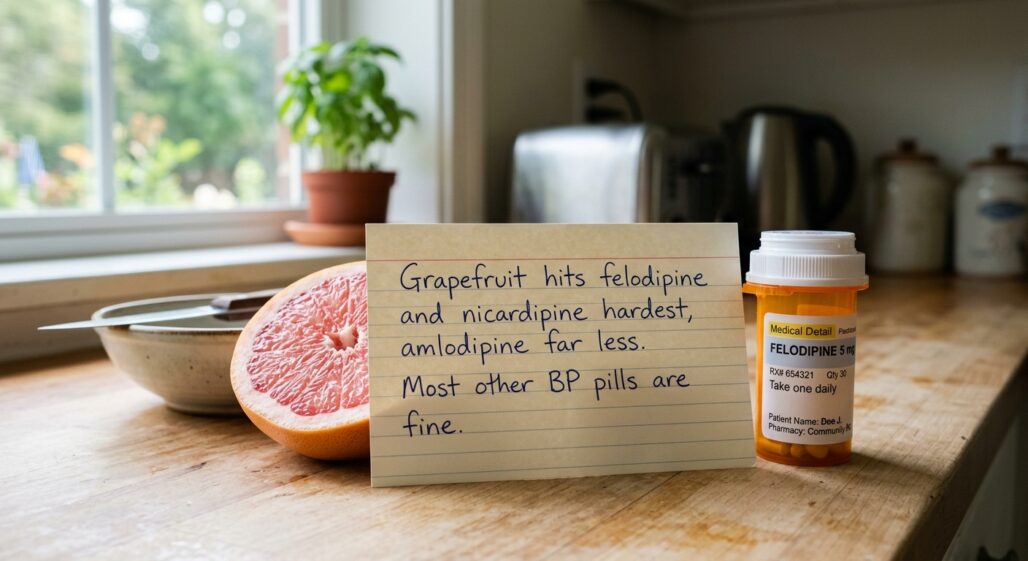 Grapefruit hits felodipine
and nicardipine hardest,
amlodipine far less.
Most other BP pills are
fine.
Medical Detail
FELODIPINE 5 mg
RX# 654321 Qty 30
Take one daily
Patient Name: Dee J.
Pharmacy: Community